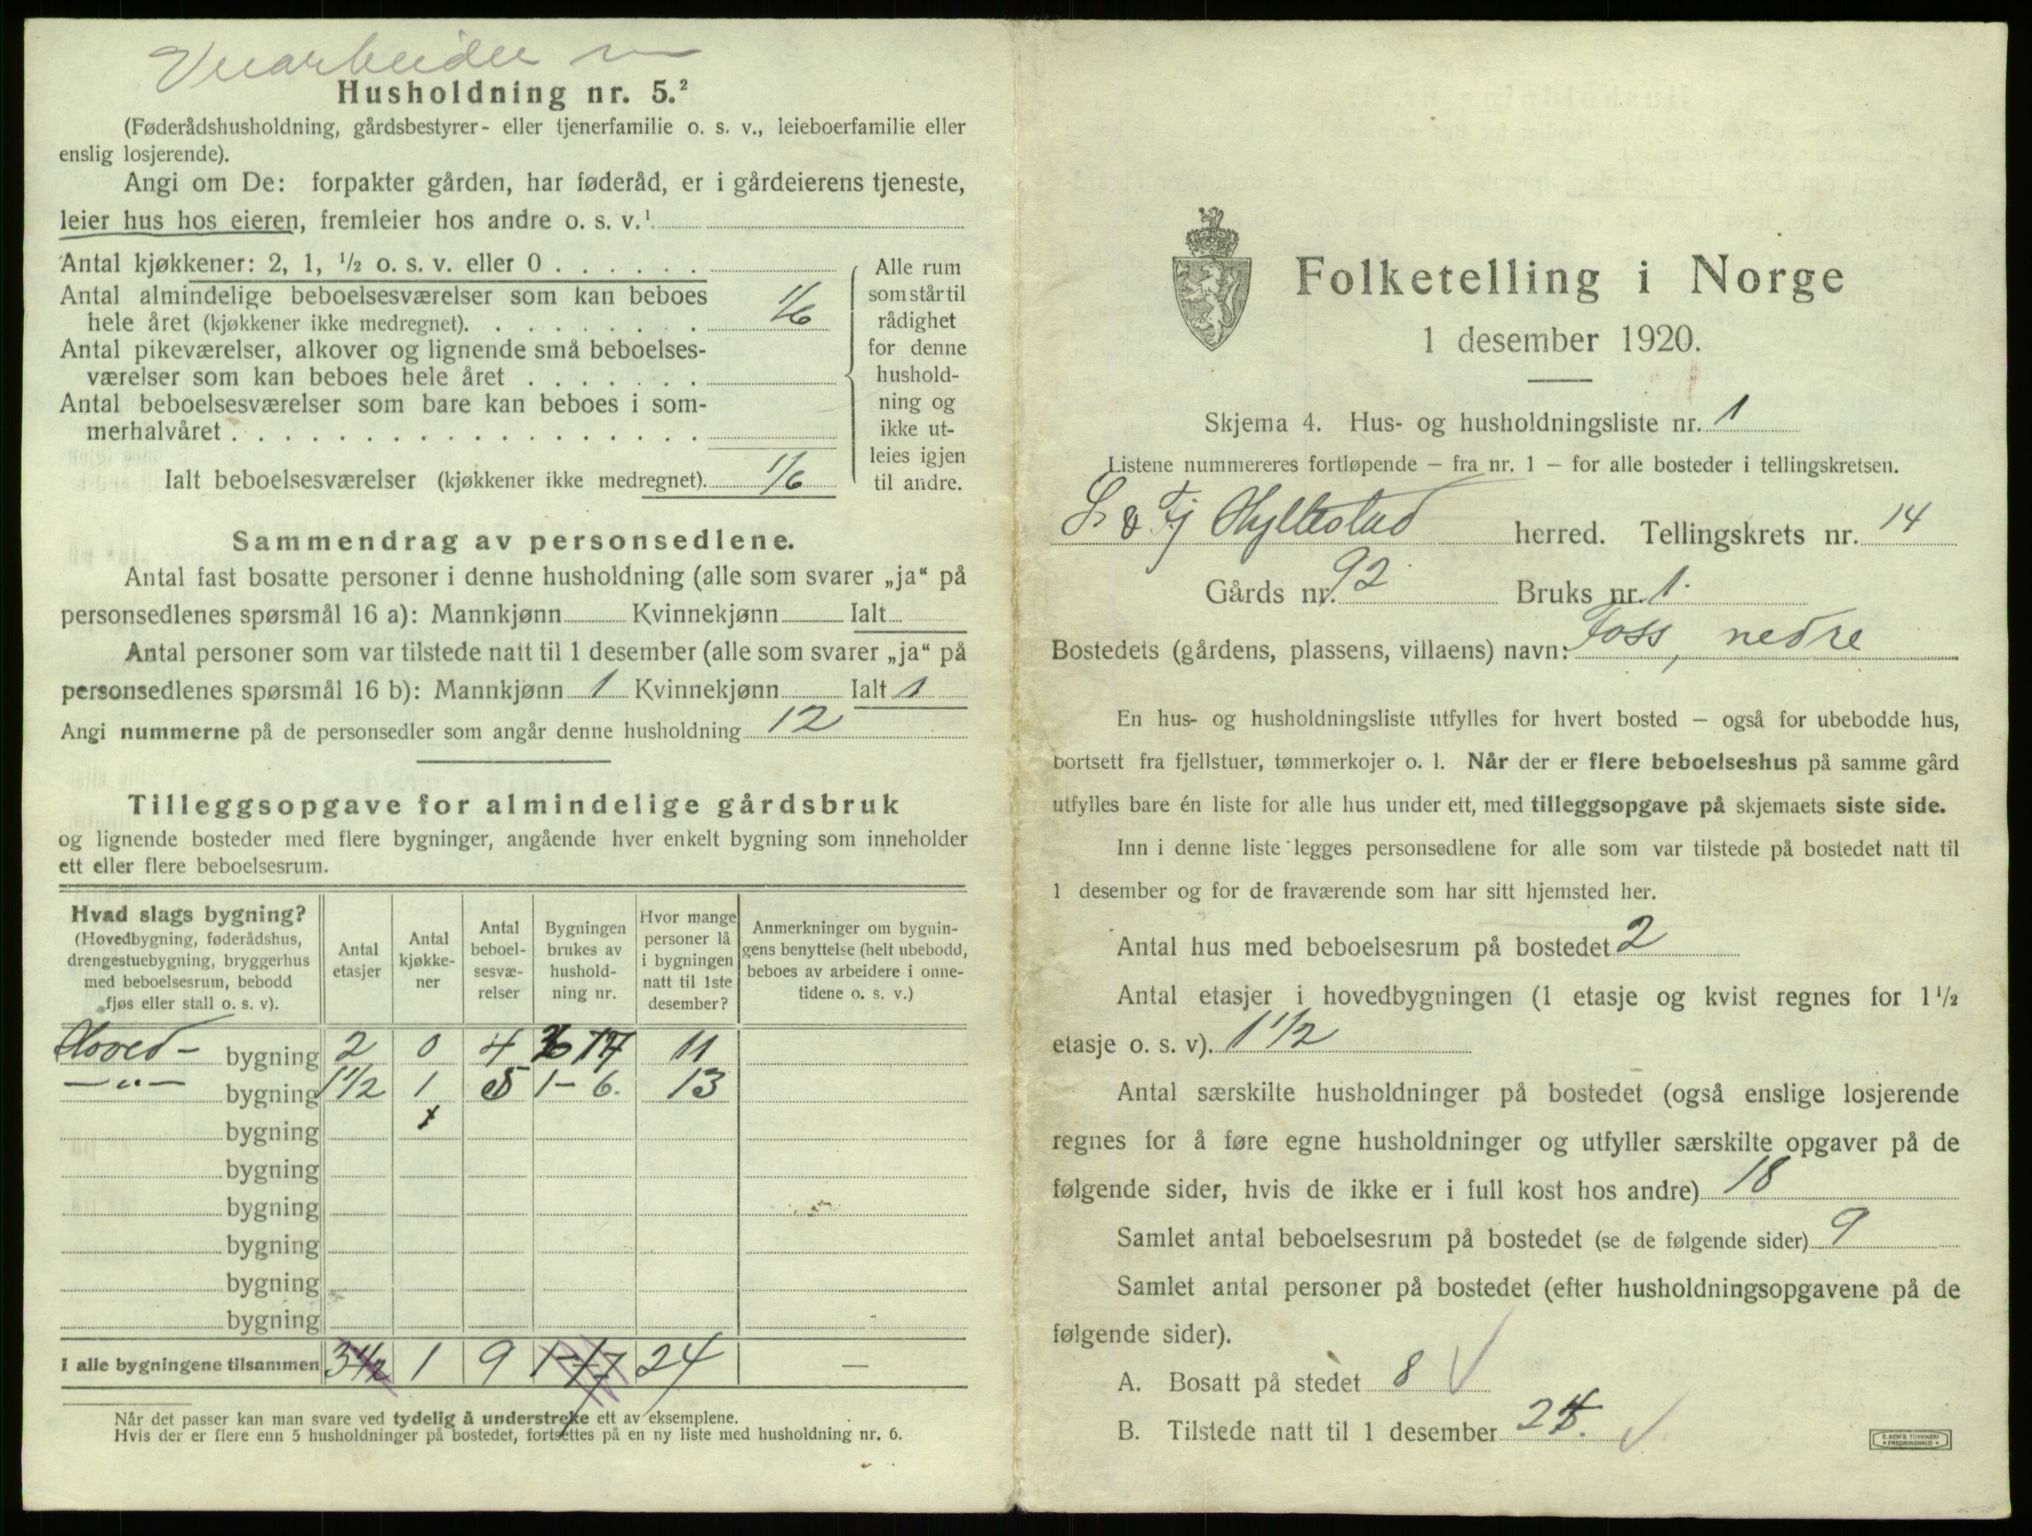 Husholdning nr. 5.²
(Føderådshusholdning, gårdsbestyrer- eller tjenerfamilie o. s. v., leieboerfamilie eller
enslig losjerende).
Angi om De: forpakter gården, har føderåd, er i gårdeierens tjeneste,
leier hus hos eieren, fremleier hos andre o. s. v.¹
Antal kjøkkener: 2, 1, ½ o. s. v. eller 0 . . . . . .
Antal almindelige beboelsesværelser som kan beboes
hele året (kjøkkener ikke medregnet). . . . . . . . . 1/6
Antal pikeværelser, alkover og lignende små beboelses-
værelser som kan beboes hele året . . . . . . .
Antal beboelsesværelser som bare kan beboes i som-
merhalvåret . . . . . . . . . . . . . . . . . .
Ialt beboelsesværelser (kjøkkener ikke medregnet). 1/6
Alle rum
som står til
rådighet
for denne
hushold-
ning og
ikke ut-
leies igjen
til andre.
Sammendrag av personsedlene.
Antal fast bosatte personer i denne husholdning (alle som svarer „ja“ på
personsedlenes spørsmål 16 a): Mannkjønn Kvinnekjønn Ialt
Antal personer som var tilstede natt til 1 desember (alle som svarer „ja“ på
personsedlenes spørsmål 16 b): Mannkjønn 1 Kvinnekjønn Ialt 1
Angi nummerne på de personsedler som angår denne husholdning 12
Tilleggsopgave for almindelige gårdsbruk
og lignende bosteder med flere bygninger, angående hver enkelt bygning som inneholder
ett eller flere beboelsesrum.
Hvad slags bygning?
(Hovedbygning, føderådshus,
drengestuebygning, bryggerhus
med beboelsesrum, bebodd
fjøs eller stall o. s. v).
Antal
etasjer
Antal
kjøkke-
ner
Antal
beboel-
sesvæ-
relser
Bygningen
brukes av
hushold-
ning nr.
Hvor mange
personer lå
i bygningen
natt til 1ste
desember?
Anmerkninger om bygnin-
gens benyttelse (helt ubebodd,
beboes av arbeidere i onne-
tidene o. s. v.)
Hoved- bygning 2 0 4 11
—"— bygning 1½ 1 5 1-6. 13
bygning x
bygning
bygning
bygning
bygning
bygning
I alle bygningene tilsammen 3½ 1 9 1-17 24 —
Når det passer kan man svare ved tydelig å understreke ett av eksemplene.
Hvis der er flere enn 5 husholdninger på bostedet, fortsettes på en ny liste med husholdning nr. 6.
Folketelling i Norge
1 desember 1920.
Skjema 4. Hus- og husholdningsliste nr. 1
Listene nummereres fortløpende — fra nr. 1 — for alle bosteder i tellingskretsen.
S. & Fj Hyllestad herred. Tellingskrets nr. 14
Gårds nr. 92 Bruks nr. 1.
Bostedets (gårdens, plassens, villaens) navn: Foss, nedre
En hus- og husholdningsliste utfylles for hvert bosted — også for ubebodde hus,
bortsett fra fjellstuer, tømmerkojer o. l. Når der er flere beboelseshus på samme gård
utfylles bare én liste for alle hus under ett, med tilleggsopgave på skjemaets siste side.
Inn i denne liste legges personsedlene for alle som var tilstede på bostedet natt til
1 desember og for de fraværende som har sitt hjemsted her.
Antal hus med beboelsesrum på bostedet 2
Antal etasjer i hovedbygningen (1 etasje og kvist regnes for 1½
etasje o. s. v). 1½
Antal særskilte husholdninger på bostedet (også enslige losjerende
regnes for å føre egne husholdninger og utfyller særskilte opgaver på de
følgende sider, hvis de ikke er i full kost hos andre) 18
Samlet antal beboelsesrum på bostedet (se de følgende sider) 9
Samlet antal personer på bostedet (efter husholdningsopgavene på de
følgende sider).
A. Bosatt på stedet 8
B. Tilstede natt til 1 desember